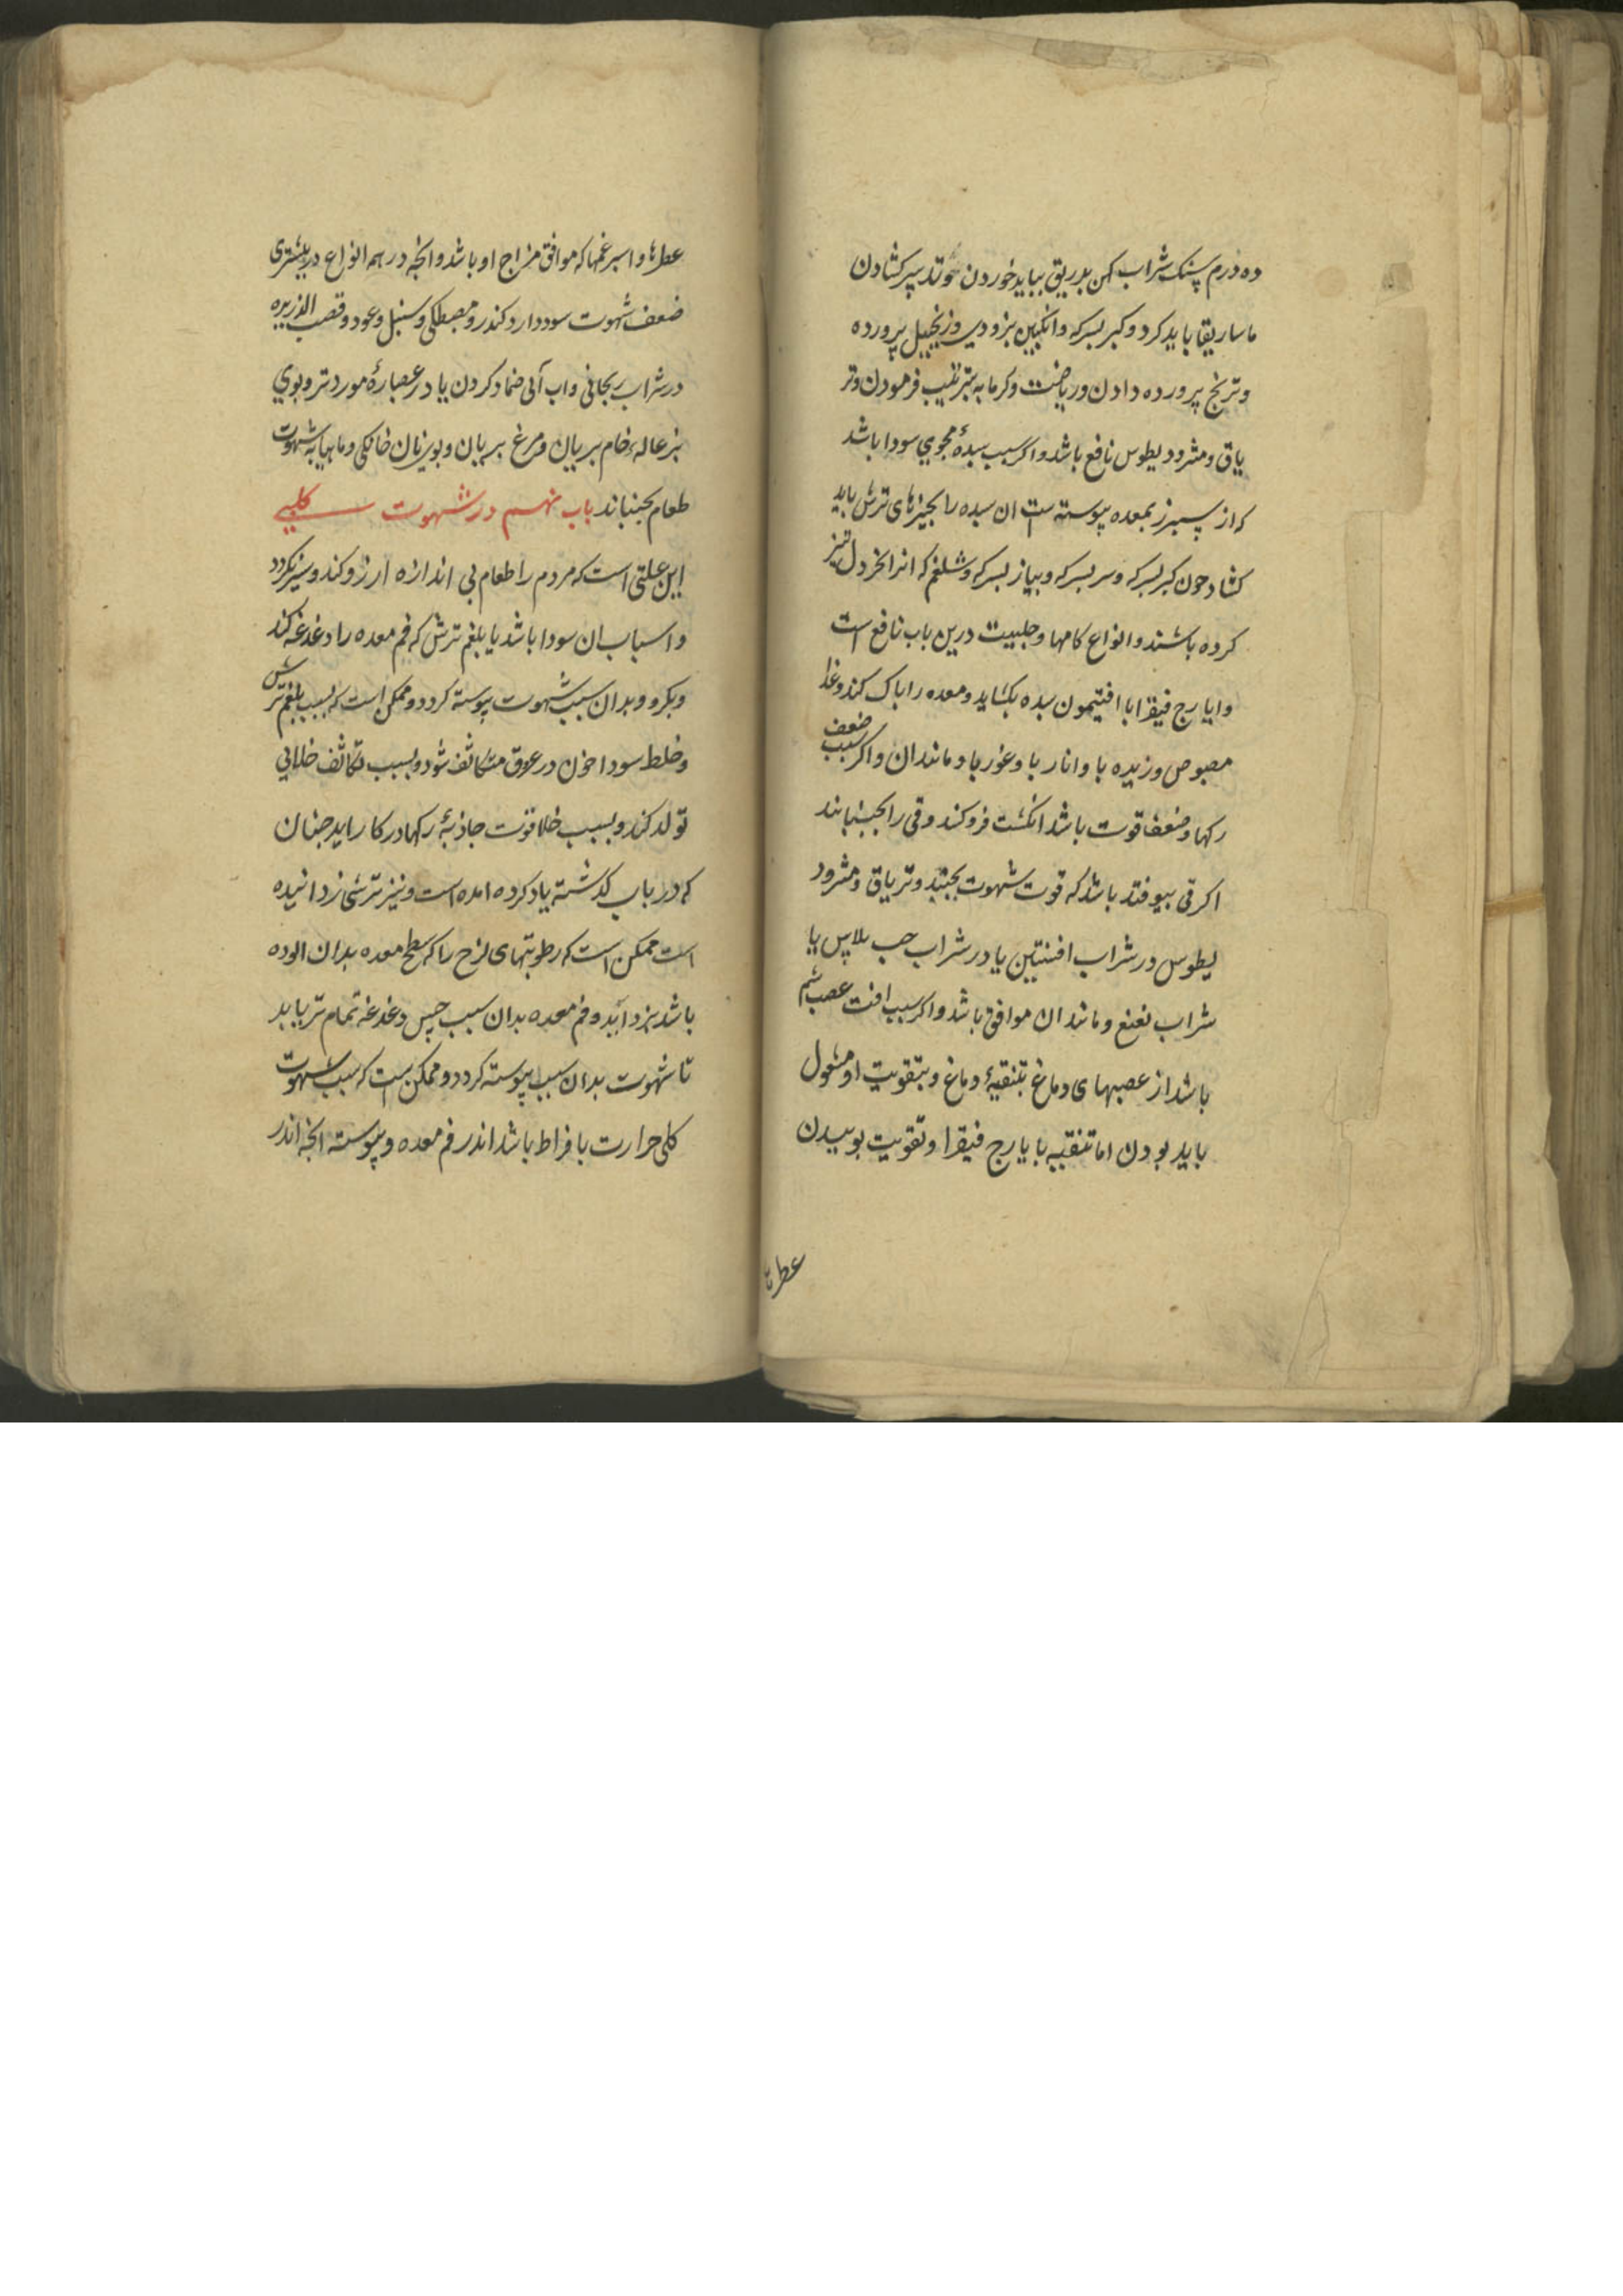 ده درم سنک شراب کهن بدریق بباید خوردن تدبیر کشادن
ماساریقا باید کرد و کبر بسرکه و انکبین بزودی وزنجبیل پرورده
وترنج پرورده دادن وریاضت وکرمابه بترتیب فرمودن وتر
یاق ومثرودیطوس نافع باشد واکر سبب سدهٔ مجری سودا باشد
که از سپرز بمعده پیوسته است ان سده را بجیزهای ترش باید
کشاد جون کبر بسرکه وسیر بسرکه وپیاز بسرکه وشلغم که انرا بخردل تیز
کرده باشند وانواع کامها وحلتیت درین باب نافع است
وایارج فیقرا با افتیمون سده بکشاید ومعده را پاک کند وغذا
مصوص وزیره با وانار با وغوربا ومانندان واکر سبب ضعف
رکها وضعف قوت باشد انکشت فرو کند وقی را بجنبانند
اکر قی بیوفتد باشد که قوت شهوت بجنبد وتریاق ومثرود
لیطوس در شراب افسنتین یا در شراب حب بلاس یا
شراب نعنع ومانند ان موافق باشد واکر سبب افت عصب شم
باشد از عصبهای دماغ بتنقیهٔ دماغ وبتقویت او مشغول
باید بودن اما تنقیه بایارج فیقرا وتقویت بوییدن
عطرها
عطرها واسبرغمها که موافق مزاج او باشد وانجه در همه انواع در بیشتری
ضعف شهوت سود دارد کندر ومصطکی وسنبل وعود وقصب الذریره
در شراب ریحانی واب آبی ضماد کردن یا در عصارهٔ مورد تر وبوی
بزعاله خام بریان ومرغ بریان وبوی نان خانکی وماهیابه شهوت
طعام بجنباند باب نهم در شهوت کلبی
این علتی است که مردم را طعام بی اندازه ارزو کند وسیر نکردد
واسباب ان سودا باشد یا بلغم ترش که فم معده را دغدغه کند
وبکزد وبدان سبب شهوت پیوسته کردد وممکن است که بسبب بلغم ترش
وخلط سودا خون در عروق متکاثف شود وبسبب تکاثف خلائی
تولد کند وبسبب خلا قوت جاذبهٔ رکها در کار اید جنان
که در باب کذشته یاد کرده امده است ونیز ترشی زدانیده
است ممکن است که رطوبتهای لزج را که سطح معده بدان الوده
باشد بزداید وفم معده بدان سبب حس دغدغه تمام تر یابد
تا شهوت بدان سبب پیوسته کردد وممکن است که سبب شهوت
کلبی حرارت بافراط باشد اندر فم معده وپیوسته انجه اندر